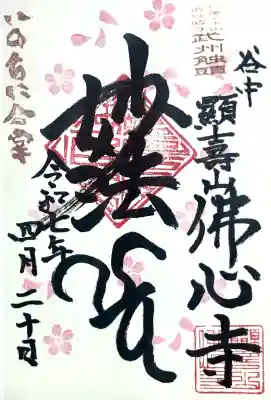 谷中
顯壽山佛心寺
武州触頭
妙法
令和七年
四月二十日
いのちに合掌